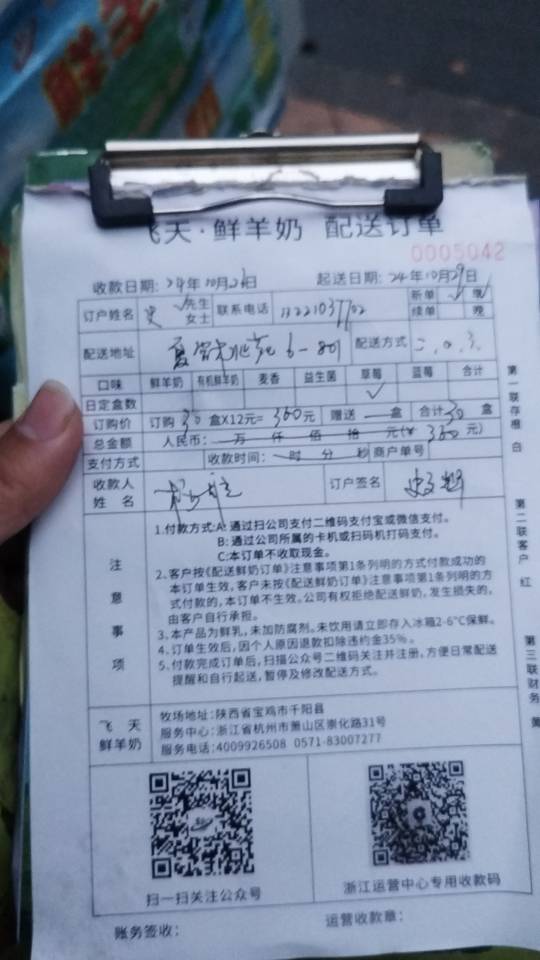 飞天·鲜羊奶 配送订单
0005042
收款日期: 24年10月26日 起送日期: 24年10月29日
订户姓名 史 先生 女士 联系电话 新单 续单 晚
配送地址 6-801 配送方式 二.四.
口味 鲜羊奶 有机鲜羊奶 麦香 益生菌 草莓 蓝莓 合计
日定盒数 ✓
订购价 订购30盒X12元=360元 赠送 盒 合计30盒
总金额 人民币: 万 仟 佰 拾 元(¥ 360元)
支付方式 收款时间: 时 分 秒 商户单号
收款人姓名 订户签名
注意事项
1.付款方式:A: 通过扫公司支付二维码支付宝或微信支付。
B: 通过公司所属的卡机或扫码机打码支付。
C:本订单不收取现金。
2、客户按《配送鲜奶订单》注意事项第1条列明的方式付款成功的
本订单生效, 客户未按《配送鲜奶订单》注意事项第1条列明的方
式付款的, 本订单不生效。公司有权拒绝配送鲜奶, 发生损失的,
由客户自行承担。
3、本产品为鲜乳, 未加防腐剂。未饮用请立即存入冰箱2-6℃保鲜。
4、订单生效后, 因个人原因退款扣除违约金35%。
5、付款完成订单后, 扫描公众号二维码关注并注册, 方便日常配送
提醒和自行起送, 暂停及修改配送方式。
飞天鲜羊奶
牧场地址: 陕西省宝鸡市千阳县
服务中心: 浙江省杭州市萧山区崇化路31号
服务电话: 4009926508 0571-83007277
扫一扫关注公众号
浙江运营中心专用收款码
账务签收:
运营收款章:
第一联存根 白
第二联客户 红
第三联财务 黄